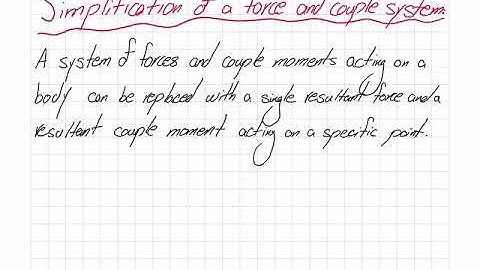 Simplification of a force and couple system:
A system of forces and couple moments acting on a
body can be replaced with a single resultant force and a
resultant couple moment acting on a specific point.